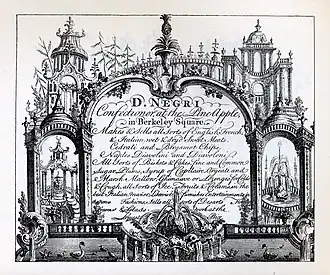 D. NEGRI
Confectioner at the Pine Apple,
in Berkeley Square.
Makes & Sells all Sorts of English, French
& Italian wet & dry'd Sweet Meats,
Cedrati and Bergamot Chips,
& Naples Diavolini and Diavoloni
All Sorts of Biskets & Cakes, fine and Common
Sugar Plums, Syrup of Capillaire, Orgeate and
Marsh Mallow, or Lozenges for Colds
& Cough, all Sorts of Ice, Fruits & Creams in the
best Italian manner, Likewise furnishes Entertainments
Fashions, Sells all Sorts of Deserts
& Glass Work at the